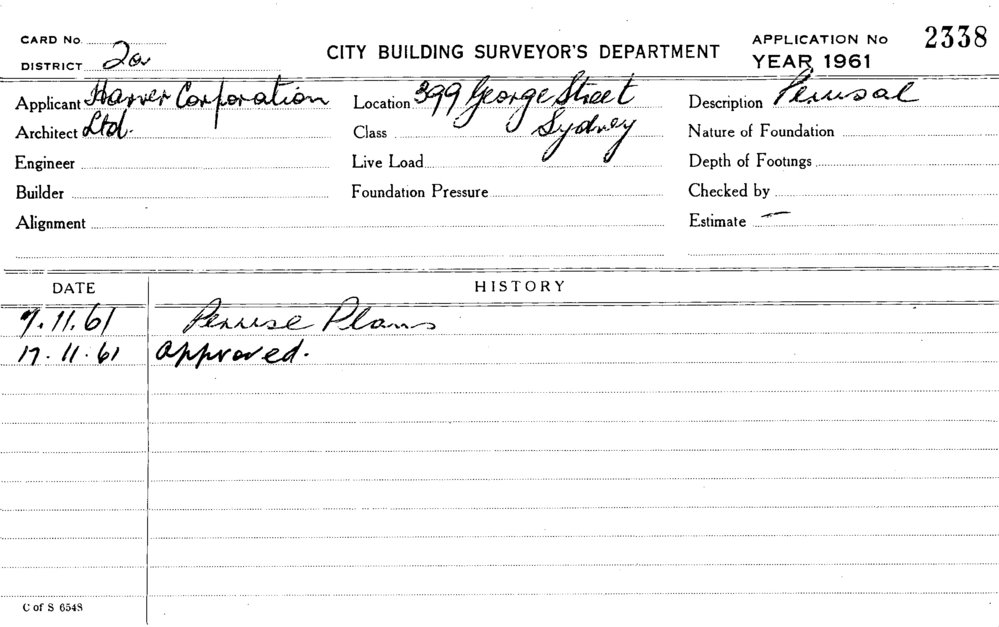 CARD No.
DISTRICT 2a
CITY BUILDING SURVEYOR'S DEPARTMENT
APPLICATION No 2338
YEAR 1961
Applicant Hanver Corporation
Location 399 George Street
Description Perusal
Architect Ltd.
Class Sydney
Nature of Foundation
Engineer
Live Load
Depth of Footings
Builder
Foundation Pressure
Checked by
Alignment
Estimate —
DATE
HISTORY
9.11.61 Peruse Plans
17.11.61 approved.
C of S 6548